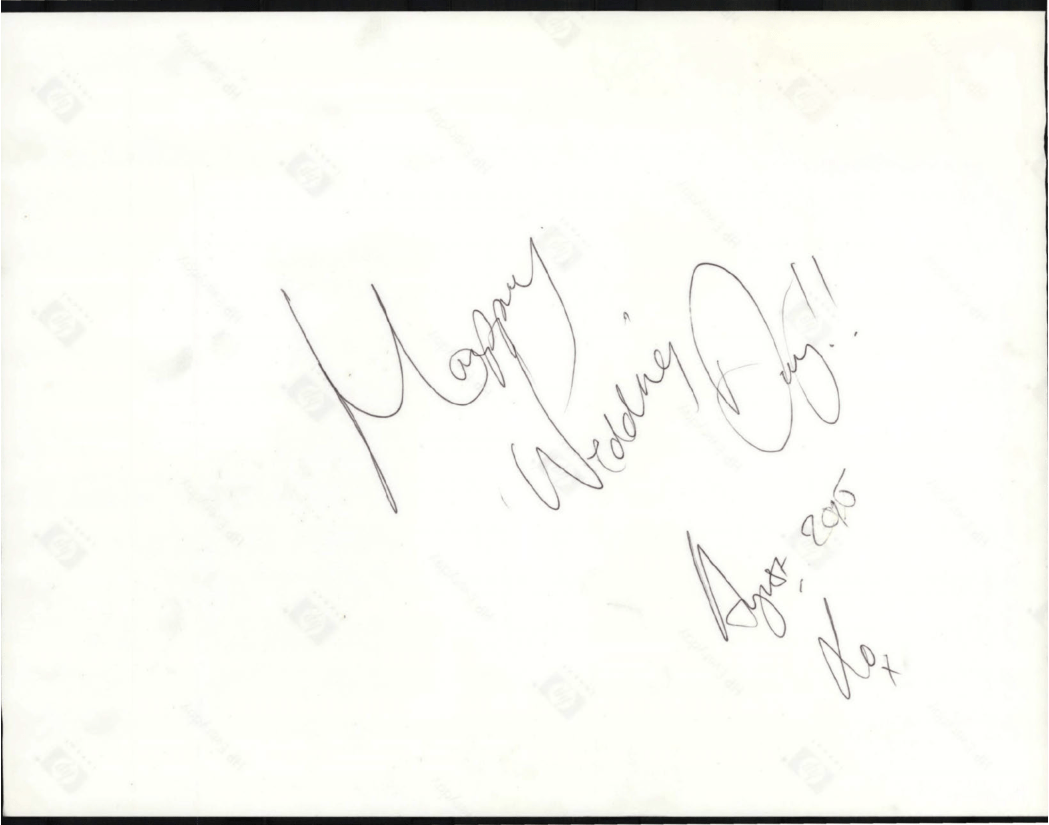 Happy
Wedding Day!!
August, 2005